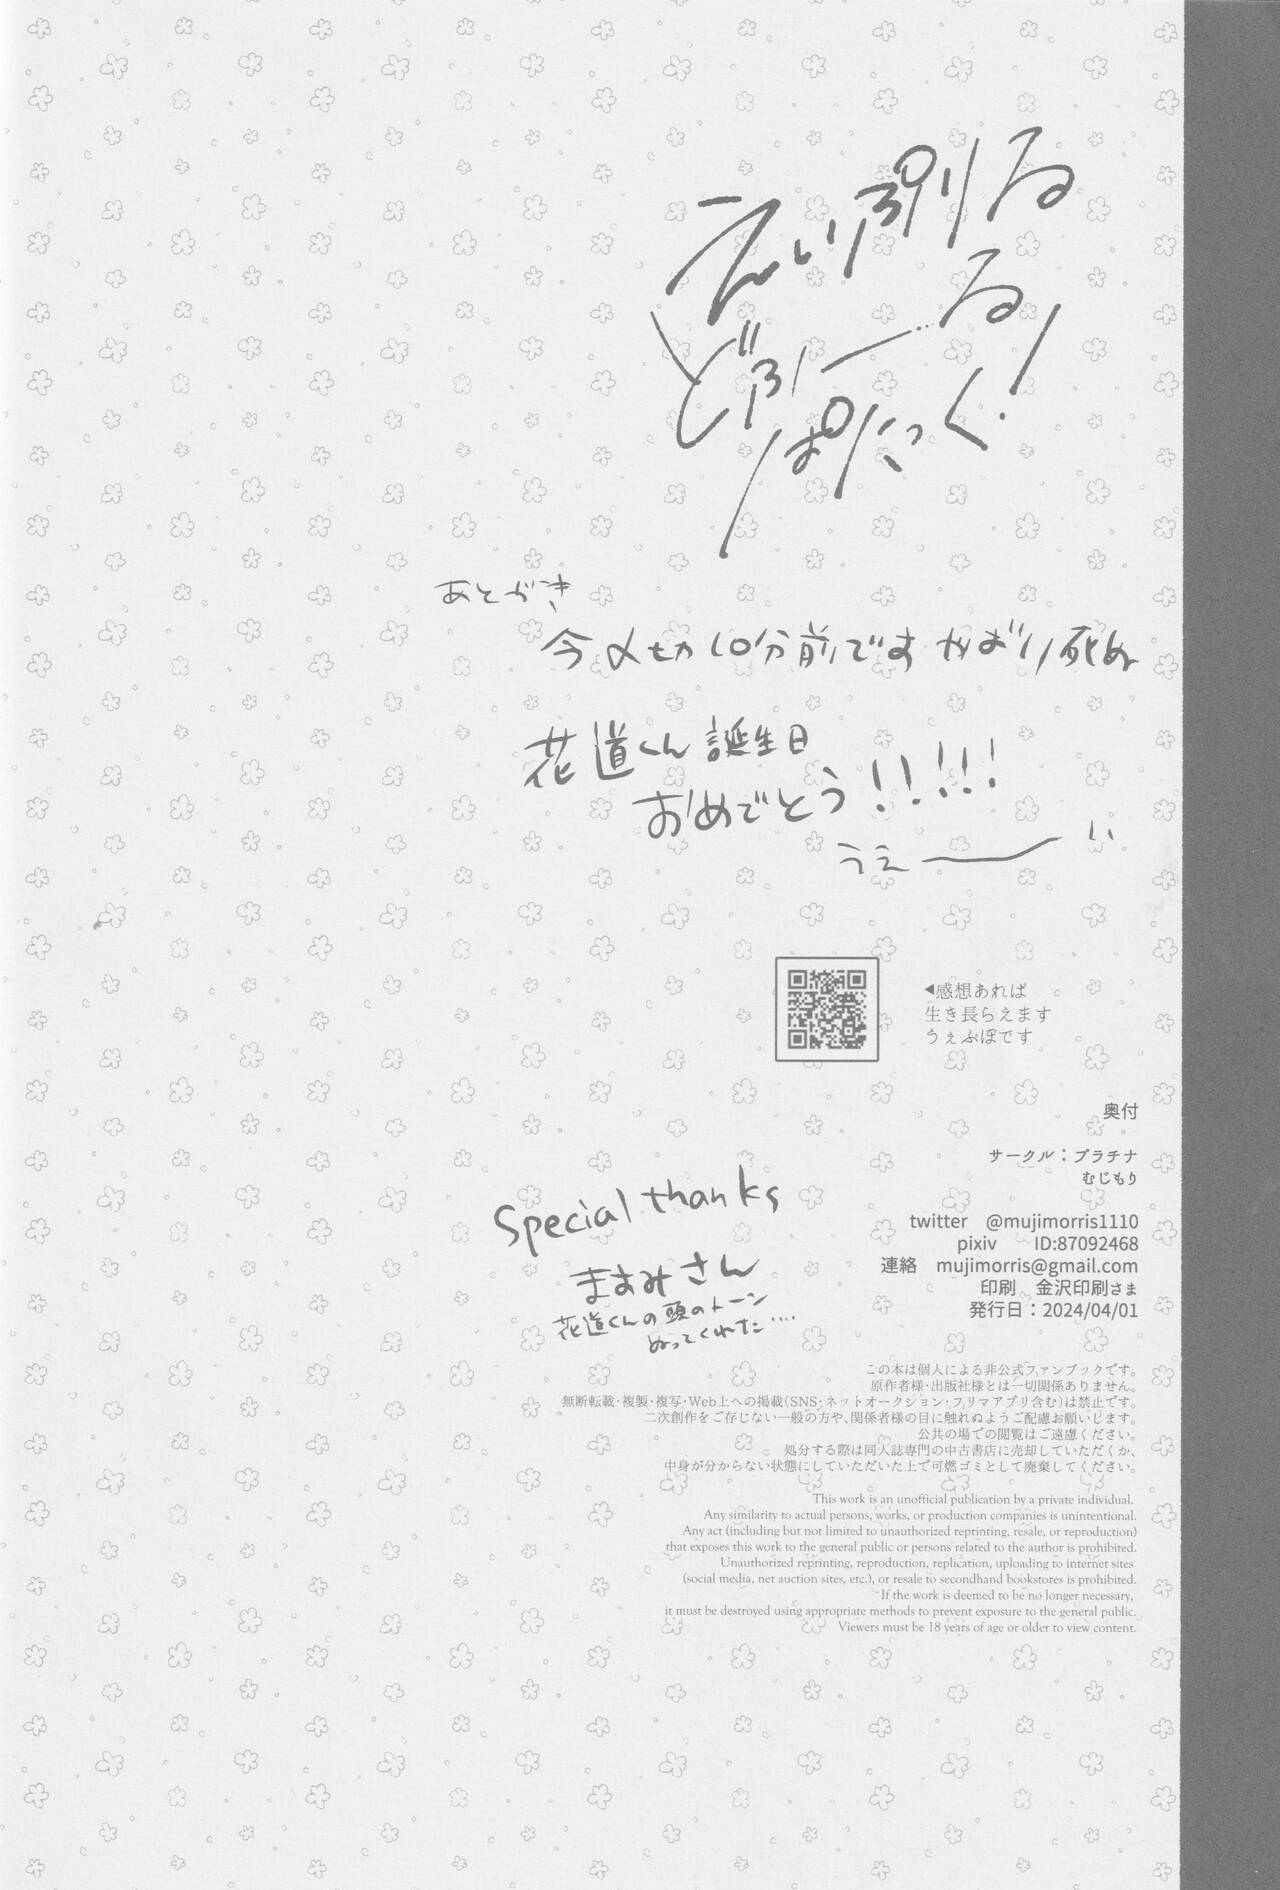 えいぷりる
どふーる
ぱにっく!
あとがき
今〆切10分前です やばい死ぬ
花道くん誕生日
おめでとう!!!!!
うえーい
◀感想あれば
生き長らえます
うぇぶぼです
奥付
サークル：プラチナ
むじもり
twitter @mujimorris1110
pixiv ID:87092468
連絡 mujimorris@gmail.com
印刷 金沢印刷さま
発行日：2024/04/01
Special thanks
まおみさん
花道くんの頭のトーン
ぬってくれた....
この本は個人による非公式ファンブックです。
原作者様・出版社様とは一切関係ありません。
無断転載・複製・複写・Web上への掲載(SNS・ネットオークション・フリマアプリ含む)は禁止です。
二次創作をご存じない一般の方や、関係者様の目に触れぬようご配慮お願いします。
公共の場での閲覧はご遠慮ください。
処分する際は同人誌専門の中古書店に売却していただくか、
中身が分からない状態にしていただいた上で可燃ゴミとして廃棄してください。
This work is an unofficial publication by a private individual.
Any similarity to actual persons, works, or production companies is unintentional.
Any act (including but not limited to unauthorized reprinting, resale, or reproduction)
that exposes this work to the general public or persons related to the author is prohibited.
Unauthorized reprinting, reproduction, replication, uploading to internet sites
(social media, net auction sites, etc.), or resale to secondhand bookstores is prohibited.
If the work is deemed to be no longer necessary,
it must be destroyed using appropriate methods to prevent exposure to the general public.
Viewers must be 18 years of age or older to view content.